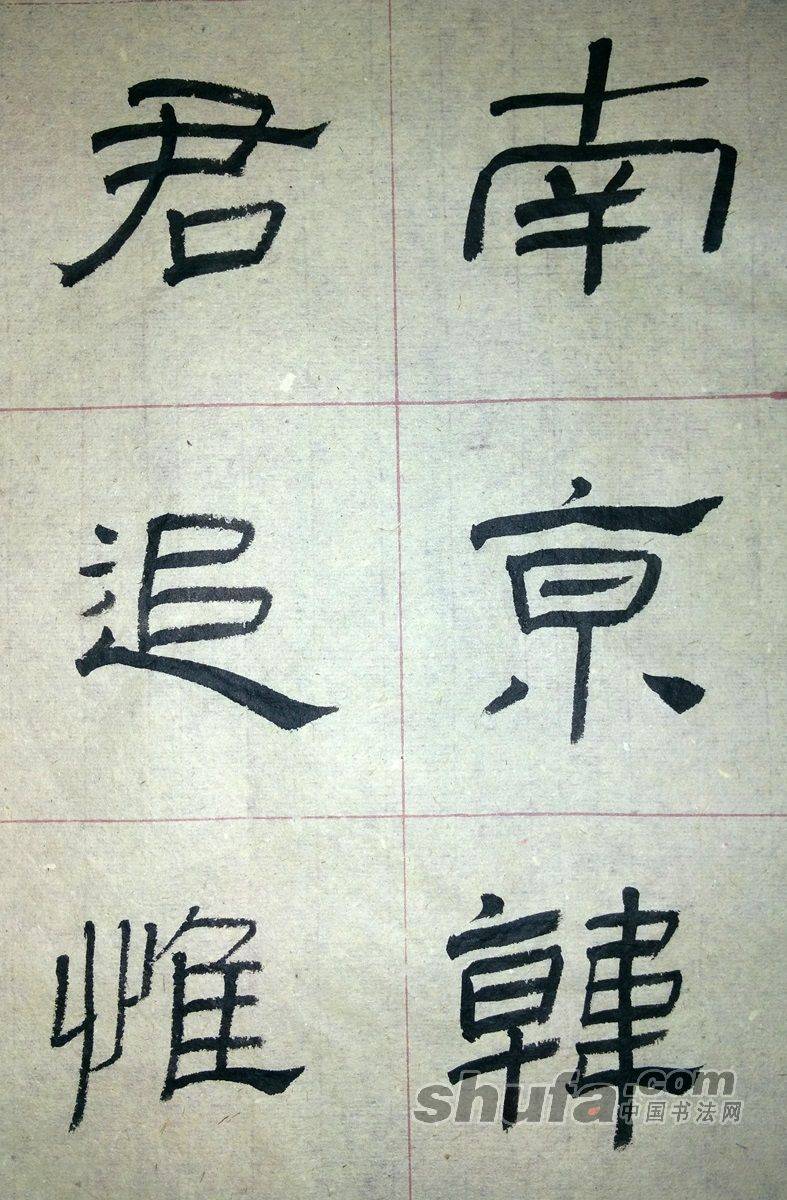 南京韓
君追惟
shufa.com
中国书法网